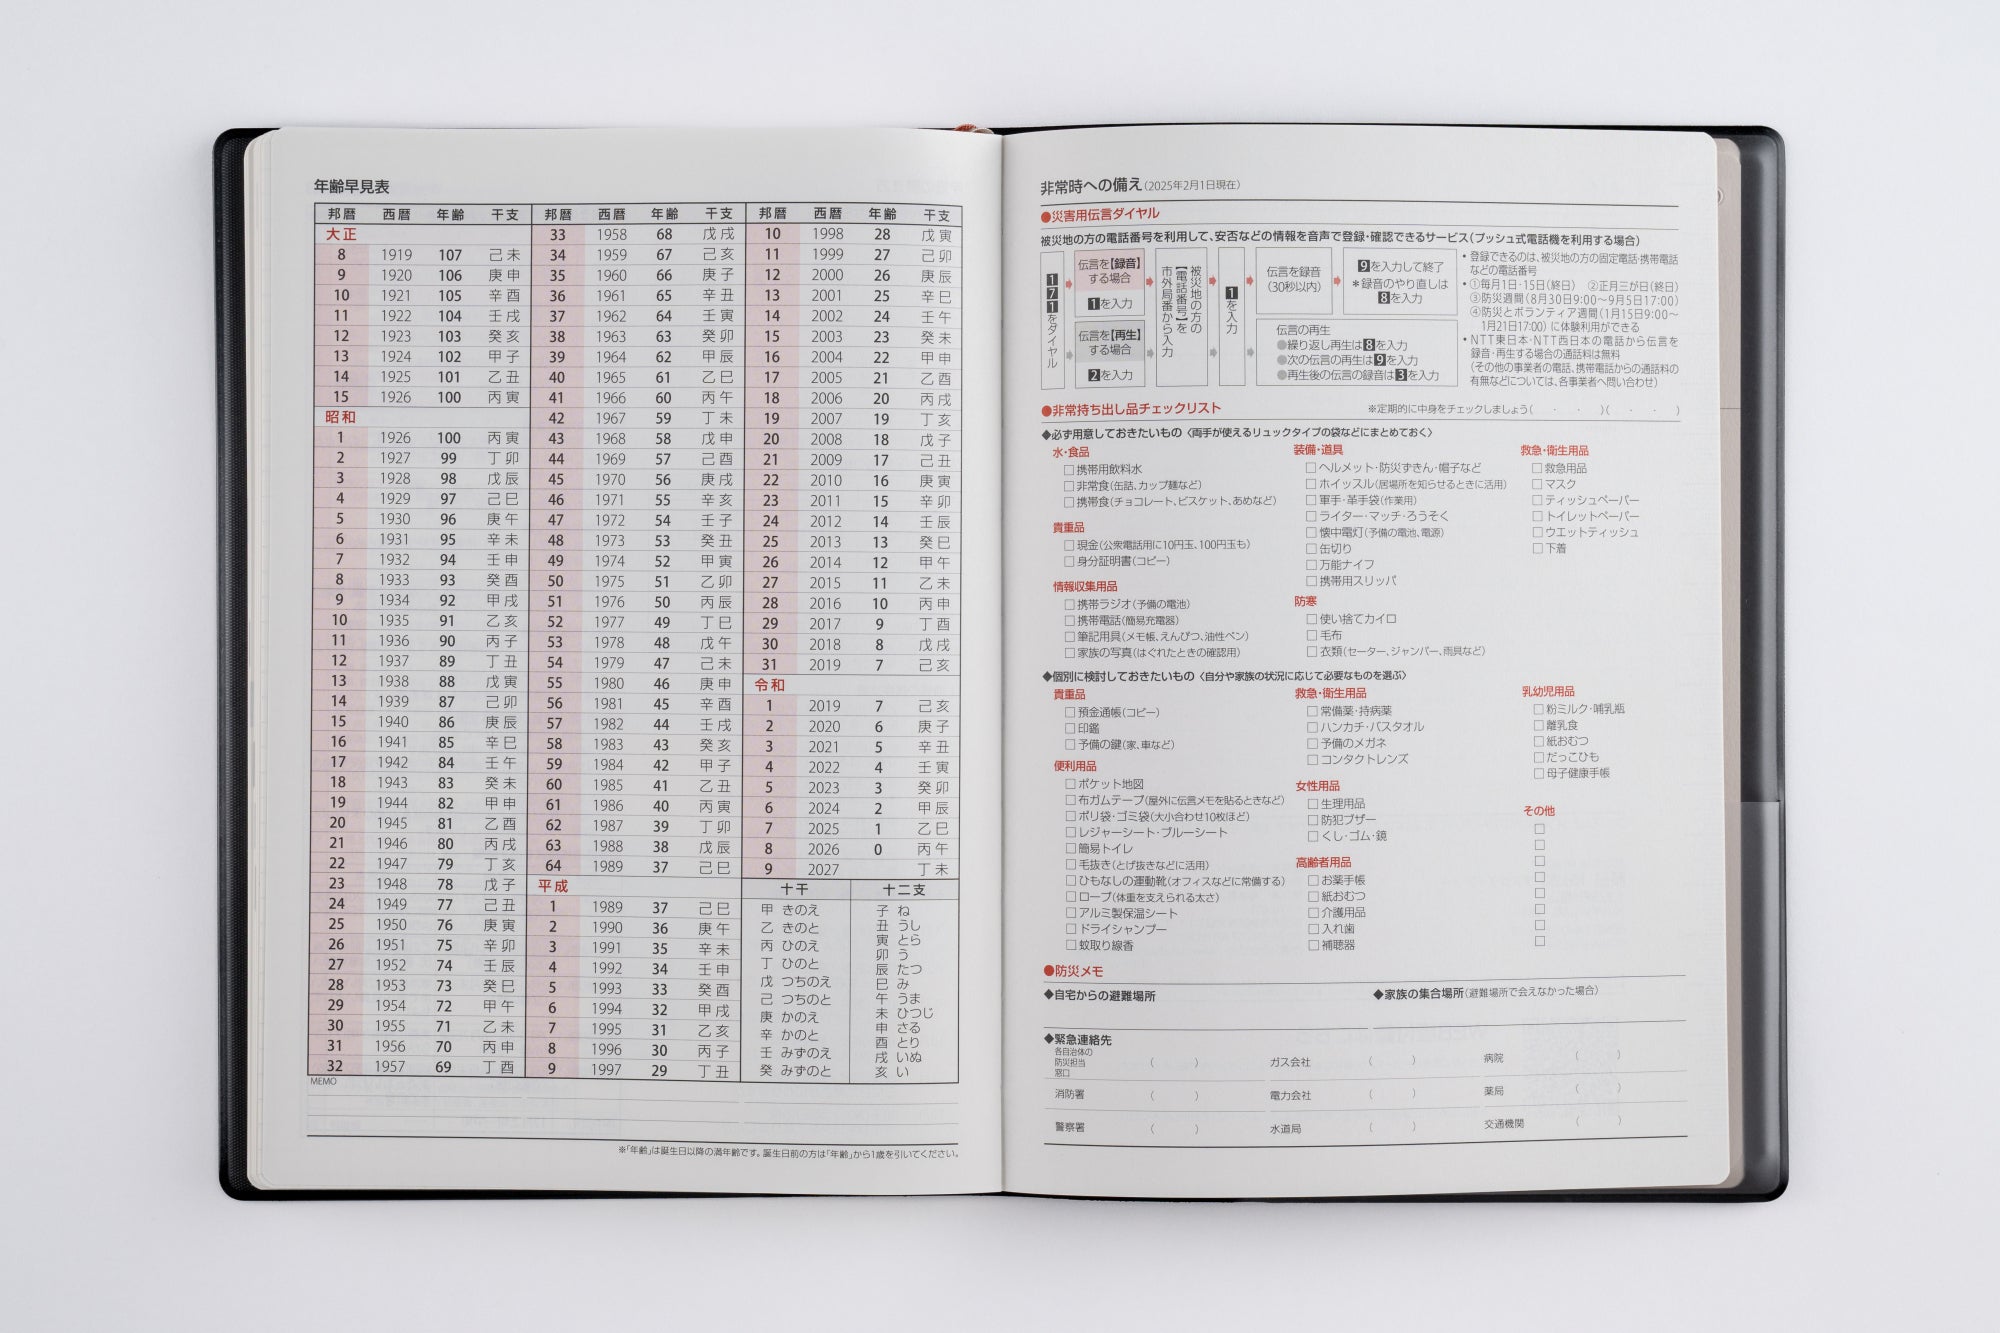 年齢早見表
邦暦 西暦 年齢 干支
大正
8 1919 107 己未
9 1920 106 庚申
10 1921 105 辛酉
11 1922 104 壬戌
12 1923 103 癸亥
13 1924 102 甲子
14 1925 101 乙丑
15 1926 100 丙寅
昭和
1 1926 100 丙寅
2 1927 99 丁卯
3 1928 98 戊辰
4 1929 97 己巳
5 1930 96 庚午
6 1931 95 辛未
7 1932 94 壬申
8 1933 93 癸酉
9 1934 92 甲戌
10 1935 91 乙亥
11 1936 90 丙子
12 1937 89 丁丑
13 1938 88 戊寅
14 1939 87 己卯
15 1940 86 庚辰
16 1941 85 辛巳
17 1942 84 壬午
18 1943 83 癸未
19 1944 82 甲申
20 1945 81 乙酉
21 1946 80 丙戌
22 1947 79 丁亥
23 1948 78 戊子
24 1949 77 己丑
25 1950 76 庚寅
26 1951 75 辛卯
27 1952 74 壬辰
28 1953 73 癸巳
29 1954 72 甲午
30 1955 71 乙未
31 1956 70 丙申
32 1957 69 丁酉
邦暦 西暦 年齢 干支
33 1958 68 戊戌
34 1959 67 己亥
35 1960 66 庚子
36 1961 65 辛丑
37 1962 64 壬寅
38 1963 63 癸卯
39 1964 62 甲辰
40 1965 61 乙巳
41 1966 60 丙午
42 1967 59 丁未
43 1968 58 戊申
44 1969 57 己酉
45 1970 56 庚戌
46 1971 55 辛亥
47 1972 54 壬子
48 1973 53 癸丑
49 1974 52 甲寅
50 1975 51 乙卯
51 1976 50 丙辰
52 1977 49 丁巳
53 1978 48 戊午
54 1979 47 己未
55 1980 46 庚申
56 1981 45 辛酉
57 1982 44 壬戌
58 1983 43 癸亥
59 1984 42 甲子
60 1985 41 乙丑
61 1986 40 丙寅
62 1987 39 丁卯
63 1988 38 戊辰
64 1989 37 己巳
平成
1 1989 37 己巳
2 1990 36 庚午
3 1991 35 辛未
4 1992 34 壬申
5 1993 33 癸酉
6 1994 32 甲戌
7 1995 31 乙亥
8 1996 30 丙子
9 1997 29 丁丑
邦暦 西暦 年齢 干支
10 1998 28 戊寅
11 1999 27 己卯
12 2000 26 庚辰
13 2001 25 辛巳
14 2002 24 壬午
15 2003 23 癸未
16 2004 22 甲申
17 2005 21 乙酉
18 2006 20 丙戌
19 2007 19 丁亥
20 2008 18 戊子
21 2009 17 己丑
22 2010 16 庚寅
23 2011 15 辛卯
24 2012 14 壬辰
25 2013 13 癸巳
26 2014 12 甲午
27 2015 11 乙未
28 2016 10 丙申
29 2017 9 丁酉
30 2018 8 戊戌
31 2019 7 己亥
令和
1 2019 7 己亥
2 2020 6 庚子
3 2021 5 辛丑
4 2022 4 壬寅
5 2023 3 癸卯
6 2024 2 甲辰
7 2025 1 乙巳
8 2026 0 丙午
9 2027 丁未
十干
甲 きのえ
乙 きのと
丙 ひのえ
丁 ひのと
戊 つちのえ
己 つちのと
庚 かのえ
辛 かのと
壬 みずのえ
癸 みずのと
十二支
子 ね
丑 うし
寅 とら
卯 う
辰 たつ
巳 み
午 うま
未 ひつじ
申 さる
酉 とり
戌 いぬ
亥 い
MEMO
※「年齢」は誕生日以降の満年齢です。誕生日前の方は「年齢」から1歳を引いてください。
非常時への備え(2025年2月1日現在)
●災害用伝言ダイヤル
被災地の方の電話番号を利用して、安否などの情報を音声で登録・確認できるサービス(プッシュ式電話機を利用する場合)
171をダイヤル
伝言を【録音】
する場合
1を入力
伝言を【再生】
する場合
2を入力
被災地の方の
【電話番号】を
市外局番から入力
1を入力
伝言を録音
(30秒以内)
9を入力して終了
*録音のやり直しは
8を入力
伝言の再生
●繰り返し再生は8を入力
●次の伝言の再生は9を入力
●再生後の伝言の録音は3を入力
•登録できるのは、被災地の方の固定電話・携帯電話
などの電話番号
•①毎月1日・15日(終日) ②正月三が日(終日)
③防災週間(8月30日9:00～9月5日17:00)
④防災とボランティア週間(1月15日9:00～
1月21日17:00)に体験利用ができる
•NTT東日本・NTT西日本の電話から伝言を
録音・再生する場合の通話料は無料
(その他の事業者の電話、携帯電話からの通話料の
有無などについては、各事業者へ問い合わせ)
●非常持ち出し品チェックリスト ※定期的に中身をチェックしましょう( ・ ・ )( ・ ・ )
◆必ず用意しておきたいもの〈両手が使えるリュックタイプの袋などにまとめておく〉
水・食品
□携帯用飲料水
□非常食(缶詰、カップ麺など)
□携帯食(チョコレート、ビスケット、あめなど)
貴重品
□現金(公衆電話用に10円玉、100円玉も)
□身分証明書(コピー)
情報収集用品
□携帯ラジオ(予備の電池)
□携帯電話(簡易充電器)
□筆記用具(メモ帳、えんぴつ、油性ペン)
□家族の写真(はぐれたときの確認用)
装備・道具
□ヘルメット・防災ずきん・帽子など
□ホイッスル(居場所を知らせるときに活用)
□軍手・革手袋(作業用)
□ライター・マッチ・ろうそく
□懐中電灯(予備の電池、電源)
□缶切り
□万能ナイフ
□携帯用スリッパ
防寒
□使い捨てカイロ
□毛布
□衣類(セーター、ジャンパー、雨具など)
救急・衛生用品
□救急用品
□マスク
□ティッシュペーパー
□トイレットペーパー
□ウエットティッシュ
□下着
◆個別に検討しておきたいもの〈自分や家族の状況に応じて必要なものを選ぶ〉
貴重品
□預金通帳(コピー)
□印鑑
□予備の鍵(家、車など)
便利用品
□ポケット地図
□布ガムテープ(屋外に伝言メモを貼るときなど)
□ポリ袋・ゴミ袋(大小合わせ10枚ほど)
□レジャーシート・ブルーシート
□簡易トイレ
□毛抜き(とげ抜きなどに活用)
□ひもなしの運動靴(オフィスなどに常備する)
□ロープ(体重を支えられる太さ)
□アルミ製保温シート
□ドライシャンプー
□蚊取り線香
救急・衛生用品
□常備薬・持病薬
□ハンカチ・バスタオル
□予備のメガネ
□コンタクトレンズ
女性用品
□生理用品
□防犯ブザー
□くし・ゴム・鏡
高齢者用品
□お薬手帳
□紙おむつ
□介護用品
□入れ歯
□補聴器
乳幼児用品
□粉ミルク・哺乳瓶
□離乳食
□紙おむつ
□だっこひも
□母子健康手帳
その他
□
□
□
□
□
□
□
□
●防災メモ
◆自宅からの避難場所 ◆家族の集合場所(避難場所で会えなかった場合)
◆緊急連絡先
各自治体の
防災担当
窓口 ( ) ガス会社 ( ) 病院 ( )
消防署 ( ) 電力会社 ( ) 薬局 ( )
警察署 ( ) 水道局 ( ) 交通機関 ( )